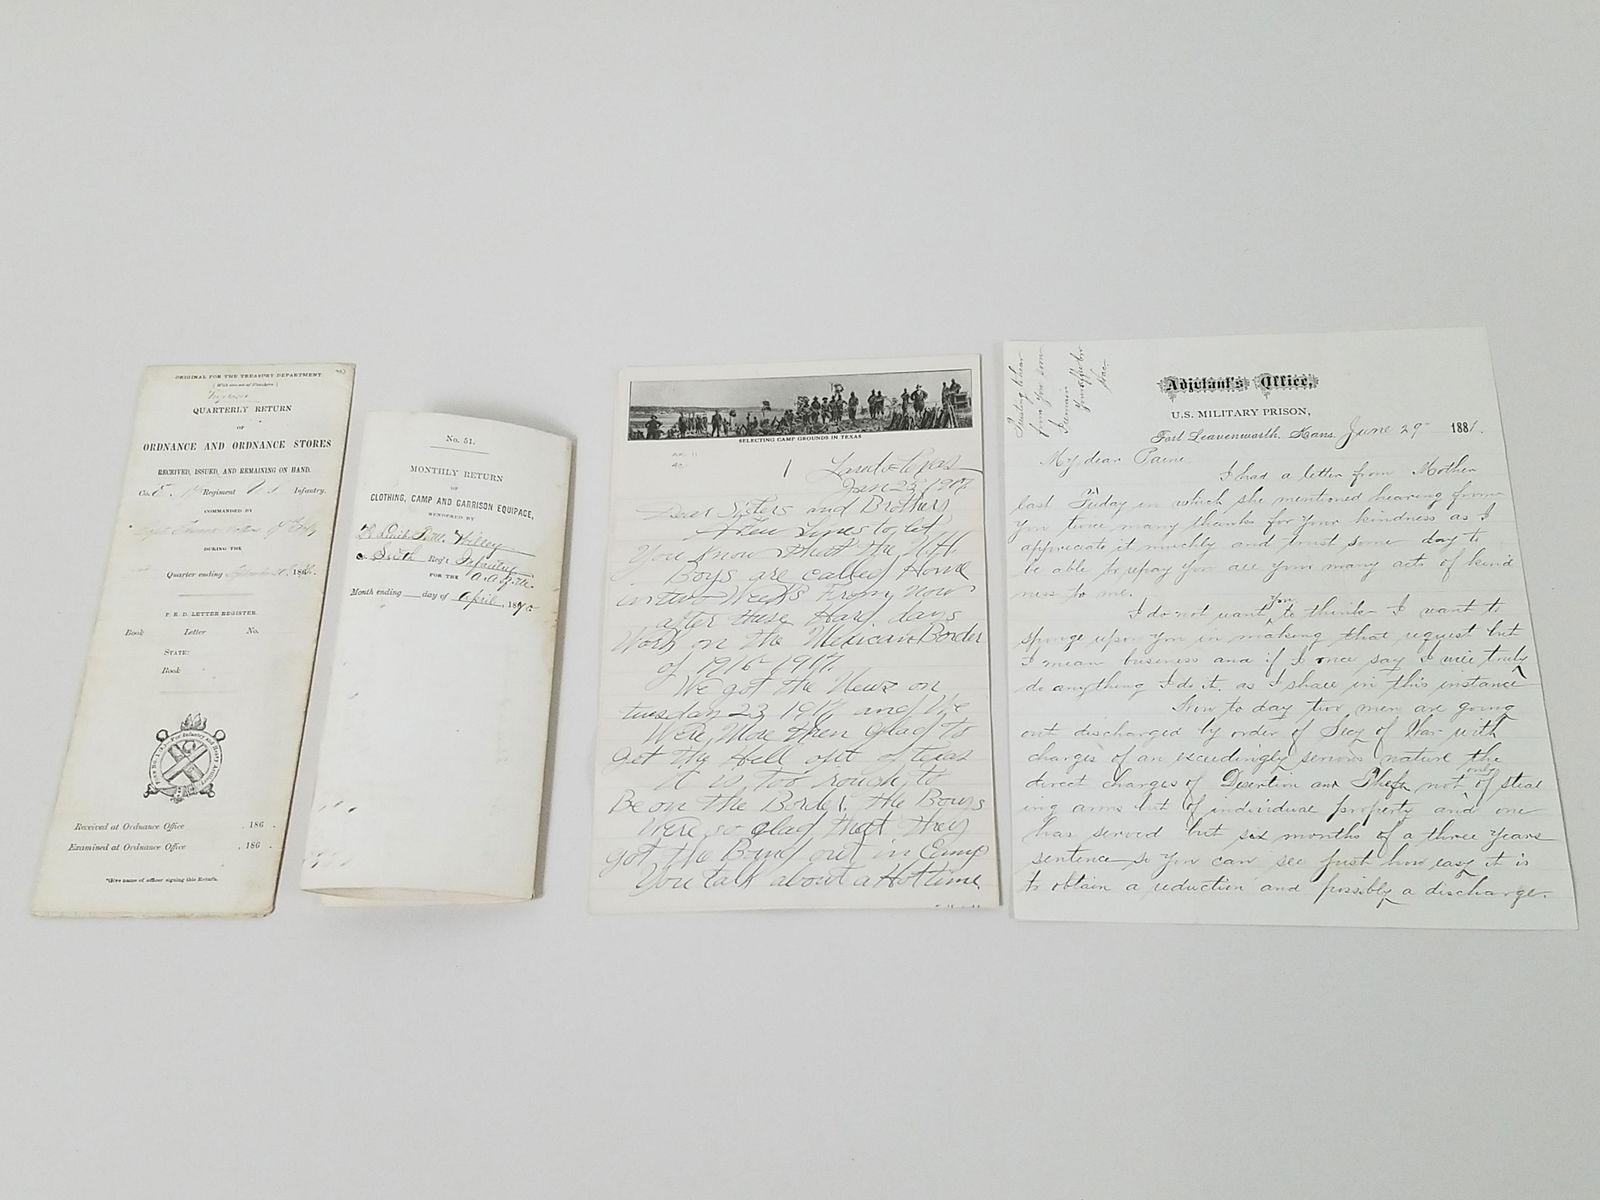 ORIGINAL FOR THE TREASURY DEPARTMENT
QUARTERLY RETURN
OF
ORDNANCE AND ORDNANCE STORES
RECEIVED, ISSUED, AND REMAINING ON HAND.
Co. E. Regiment U S Infantry,
COMMANDED BY
DURING THE
Quarter ending 186
P. R. D. LETTER REGISTER.
Book Letter No.
STATE:
Book
Received at Ordnance Office , 186 .
Examined at Ordnance Office , 186 .
*Give name of officer signing this Return.
No. 51.
MONTHLY RETURN
OF
CLOTHING, CAMP AND GARRISON EQUIPAGE,
RENDERED BY
Sixth Reg't Infantry
FOR THE
Month ending day of April, 18
SELECTING CAMP GROUNDS IN TEXAS
1
Laredo Texas
Jan 23 1917
Dear Sisters and Brothers
A few Lines to let
You know that the N.H.
Boys are called Home
in two Weeks From now
after these Hard days
Work on the Mexican Border
of 1916-1917.
We got the News on
tuesday 23, 1917 and We
Were More then Glad to
get the Hell out of texas
it is too rough to
Be on the Border, the Bouys
Were so glad that they
got the Band out in Camp
You talk about a Hot time
Adjutant's Office,
U.S. MILITARY PRISON,
Fort Leavenworth, Kans. June 29 1881.
My dear Paine
I had a letter from Mother
last Friday in which she mentioned hearing from
you twice many thanks for your kindness as I
appreciate it muchly and trust some day to
be able to repay you all your many acts of kind
ness to me.
I do not want you to think I want to
sponge upon you in making that request but
I mean business and if I once say I will truly
do anything I do it. as I shall in this instance
Now to day two men are going
out discharged by order of Secy of War with
charges of an exceedingly serious nature the
direct charges of Desertion and Theft not only of steal
ing arms but of individual property and one
has served but six months of a three years
sentence so you can see just how easy it is
to obtain a reduction and possibly a discharge.